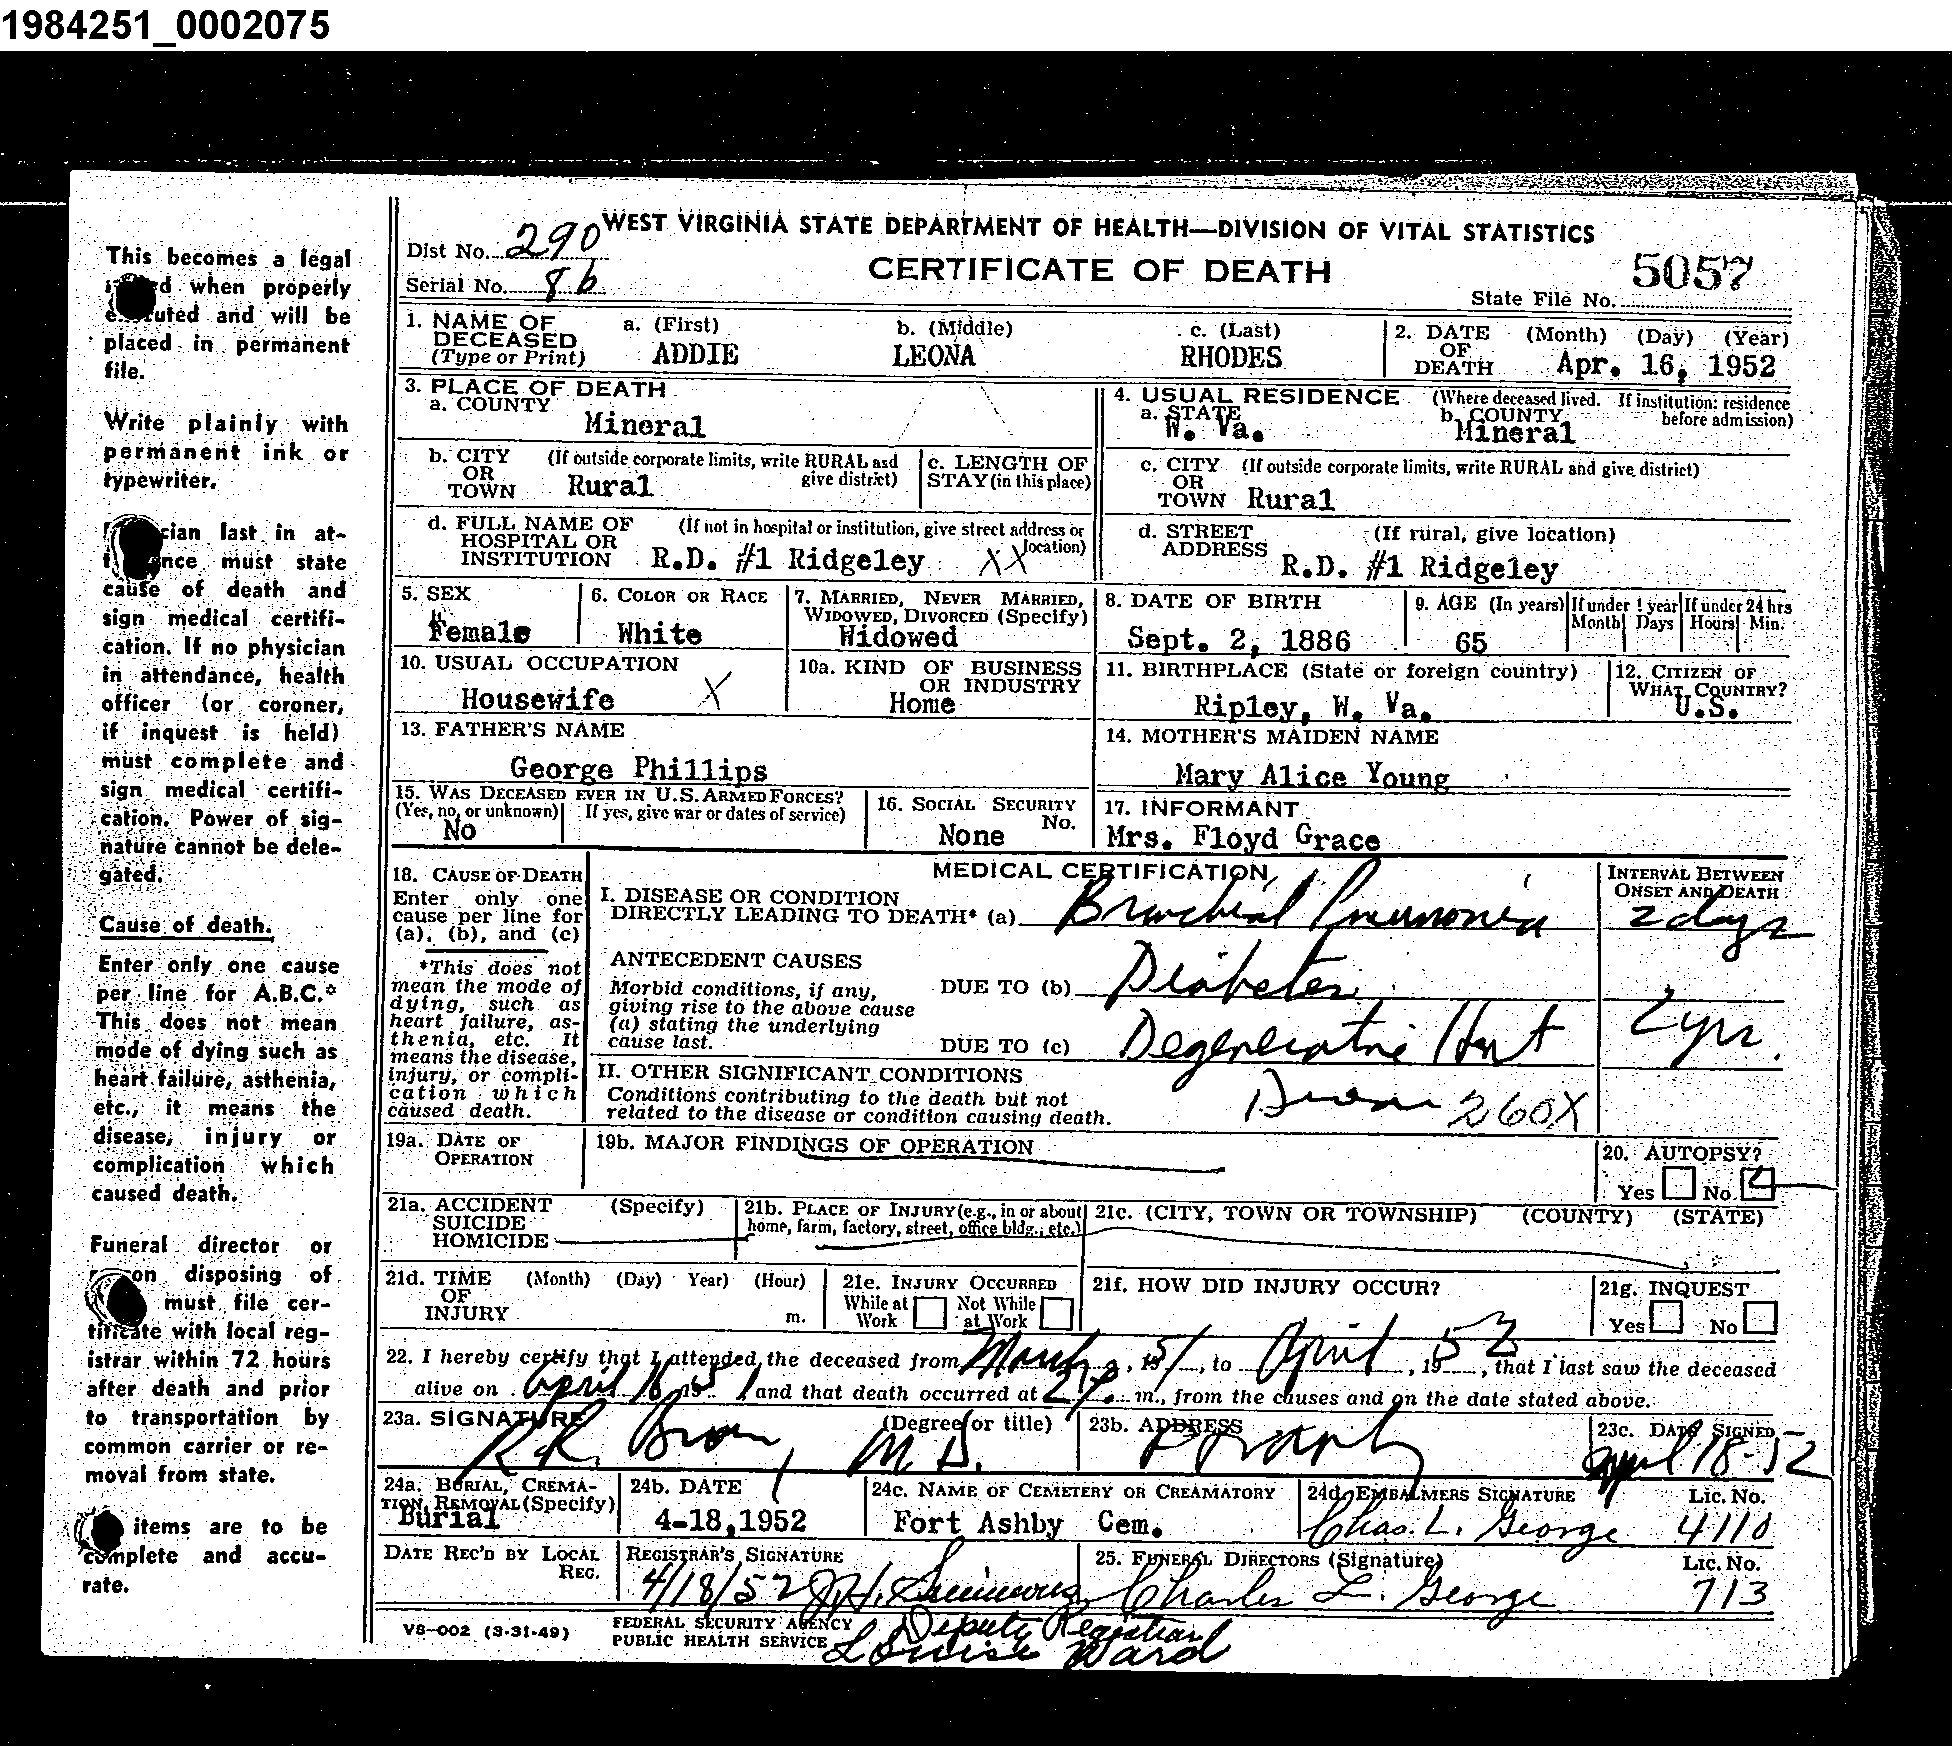 1984251_0002075
WEST VIRGINIA STATE DEPARTMENT OF HEALTH—DIVISION OF VITAL STATISTICS
Dist No. 290
CERTIFICATE OF DEATH
5057
Serial No. 8 b
State File No.
1. NAME OF DECEASED (Type or Print)
a. (First) b. (Middle) c. (Last)
ADDIE LEONA RHODES
2. DATE OF DEATH (Month) (Day) (Year)
Apr. 16, 1952
3. PLACE OF DEATH
a. COUNTY
Mineral
4. USUAL RESIDENCE (Where deceased lived. If institution: residence before admission)
a. STATE
W. Va.
b. COUNTY
Mineral
b. CITY OR TOWN (If outside corporate limits, write RURAL and give district)
Rural
c. LENGTH OF STAY (in this place)
c. CITY OR TOWN (If outside corporate limits, write RURAL and give district)
Rural
d. FULL NAME OF HOSPITAL OR INSTITUTION (If not in hospital or institution, give street address or location)
R.D. #1 Ridgeley XX
d. STREET ADDRESS (If rural, give location)
R.D. #1 Ridgeley
5. SEX
Female
6. COLOR OR RACE
White
7. MARRIED, NEVER MARRIED, WIDOWED, DIVORCED (Specify)
Widowed
8. DATE OF BIRTH
Sept. 2, 1886
9. AGE (In years)
65
If under 1 year
Month Days
If under 24 hrs
Hours Min.
10. USUAL OCCUPATION
Housewife X
10a. KIND OF BUSINESS OR INDUSTRY
Home
11. BIRTHPLACE (State or foreign country)
Ripley, W. Va.
12. CITIZEN OF WHAT COUNTRY?
U.S.
13. FATHER'S NAME
George Phillips
14. MOTHER'S MAIDEN NAME
Mary Alice Young
15. WAS DECEASED EVER IN U.S. ARMED FORCES?
(Yes, no, or unknown) If yes, give war or dates of service)
No
16. SOCIAL SECURITY No.
None
17. INFORMANT
Mrs. Floyd Grace
MEDICAL CERTIFICATION
18. CAUSE OF DEATH
Enter only one
cause per line for
(a), (b), and (c)
*This does not
mean the mode of
dying, such as
heart failure, as-
thenia, etc. It
means the disease,
injury, or compli-
cation which
caused death.
I. DISEASE OR CONDITION
DIRECTLY LEADING TO DEATH* (a) Bronchial Pneumonia
INTERVAL BETWEEN ONSET AND DEATH
2 days
ANTECEDENT CAUSES
Morbid conditions, if any,
giving rise to the above cause
(a) stating the underlying
cause last.
DUE TO (b) Diabetes
DUE TO (c) Degenerative Heart
2 yrs.
II. OTHER SIGNIFICANT CONDITIONS
Conditions contributing to the death but not
related to the disease or condition causing death.
260X
19a. DATE OF OPERATION
19b. MAJOR FINDINGS OF OPERATION
20. AUTOPSY?
Yes No
21a. ACCIDENT SUICIDE HOMICIDE (Specify)
21b. PLACE OF INJURY (e.g., in or about home, farm, factory, street, office bldg., etc.)
21c. (CITY, TOWN OR TOWNSHIP) (COUNTY) (STATE)
21d. TIME OF INJURY (Month) (Day) Year) (Hour) m.
21e. INJURY OCCURRED
While at Work Not While at Work
21f. HOW DID INJURY OCCUR?
21g. INQUEST
Yes No
22. I hereby certify that I attended the deceased from March, 1951, to April, 1952, that I last saw the deceased
alive on April 16, 1951 and that death occurred at 2 P. m., from the causes and on the date stated above.
23a. SIGNATURE (Degree or title)
R.R. Brown, M.D.
23b. ADDRESS
23c. DATE SIGNED
April 18-52
24a. BURIAL, CREMATION, REMOVAL (Specify)
Burial
24b. DATE
4-18,1952
24c. NAME OF CEMETERY OR CREAMATORY
Fort Ashby Cem.
24d. EMBALMERS SIGNATURE Lic. No.
Chas. L. George 4110
DATE REC'D BY LOCAL REG.
4/18/52
REGISTRAR'S SIGNATURE
25. FUNERAL DIRECTORS (Signature) Lic. No.
Charles L. George 713
VS-002 (3-31-49)
FEDERAL SECURITY AGENCY
PUBLIC HEALTH SERVICE
Deputy Registrar
Louise Ward
This becomes a legal
when properly
and will be
placed in permanent
file.
Write plainly with
permanent ink or
typewriter.
last in at-
must state
cause of death and
sign medical certifi-
cation. If no physician
in attendance, health
officer (or coroner,
if inquest is held)
must complete and
sign medical certifi-
cation. Power of sig-
nature cannot be dele-
gated.
Cause of death.
Enter only one cause
per line for A.B.C.*
This does not mean
mode of dying such as
heart failure, asthenia,
etc., it means the
disease, injury or
complication which
caused death.
Funeral director or
disposing of
must file cer-
tificate with local reg-
istrar within 72 hours
after death and prior
to transportation by
common carrier or re-
moval from state.
items are to be
complete and accu-
rate.